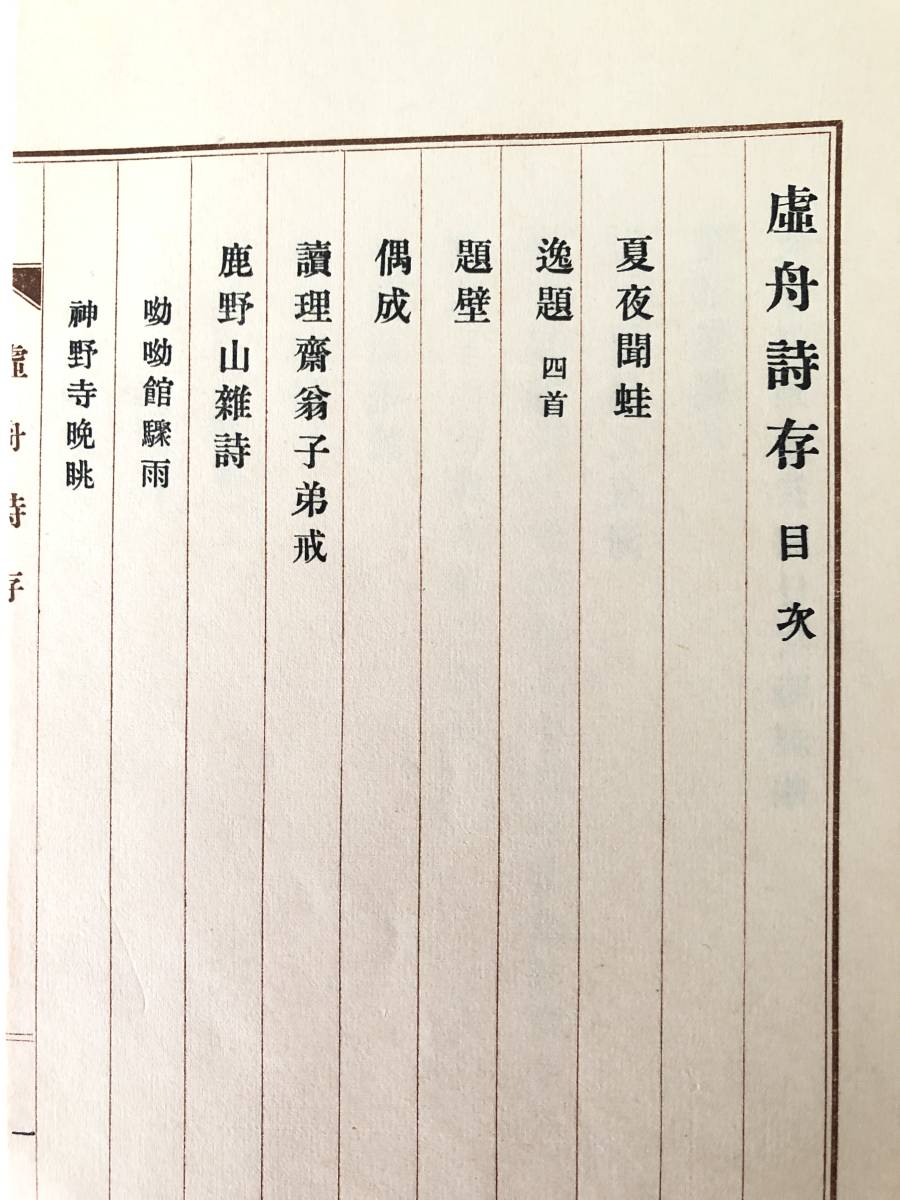 虛舟詩存 目次
夏夜聞蛙
逸題 四首
題壁
偶成
讀理齋翁子弟戒
鹿野山雜詩
呦呦館驟雨
神野寺晩眺
虛舟詩存
一